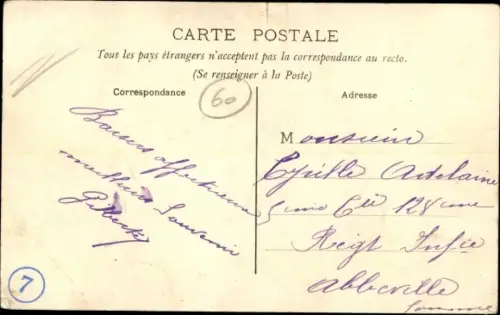 CARTE POSTALE
Tous les pays étrangers n'acceptent pas la correspondance au recto.
(Se renseigner à la Poste)
Correspondance
60
Adresse
Baisers affectueux
meilleur Souvenir
Monsieur
Cyrille
5ème Cie 128ème
Régt Infie
Abbeville
Somme
7